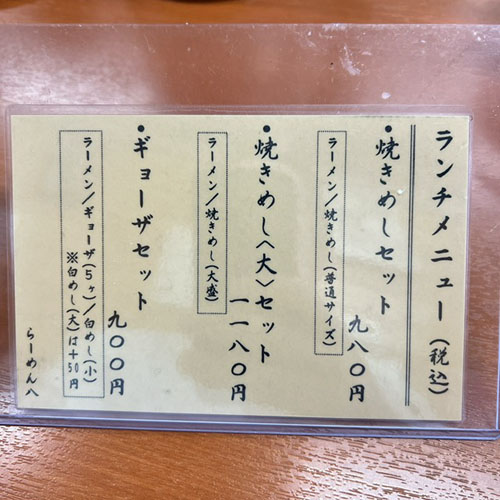 ランチメニュー(税込)
●焼きめしセット
九八〇円
ラーメン/焼きめし(普通サイズ)
●焼きめし〈大〉セット
一一八〇円
ラーメン/焼きめし(大盛)
●ギョーザセット
九〇〇円
ラーメン/ギョーザ(5ヶ)/白めし(小)
※白めし(大)は+50円
らーめん八